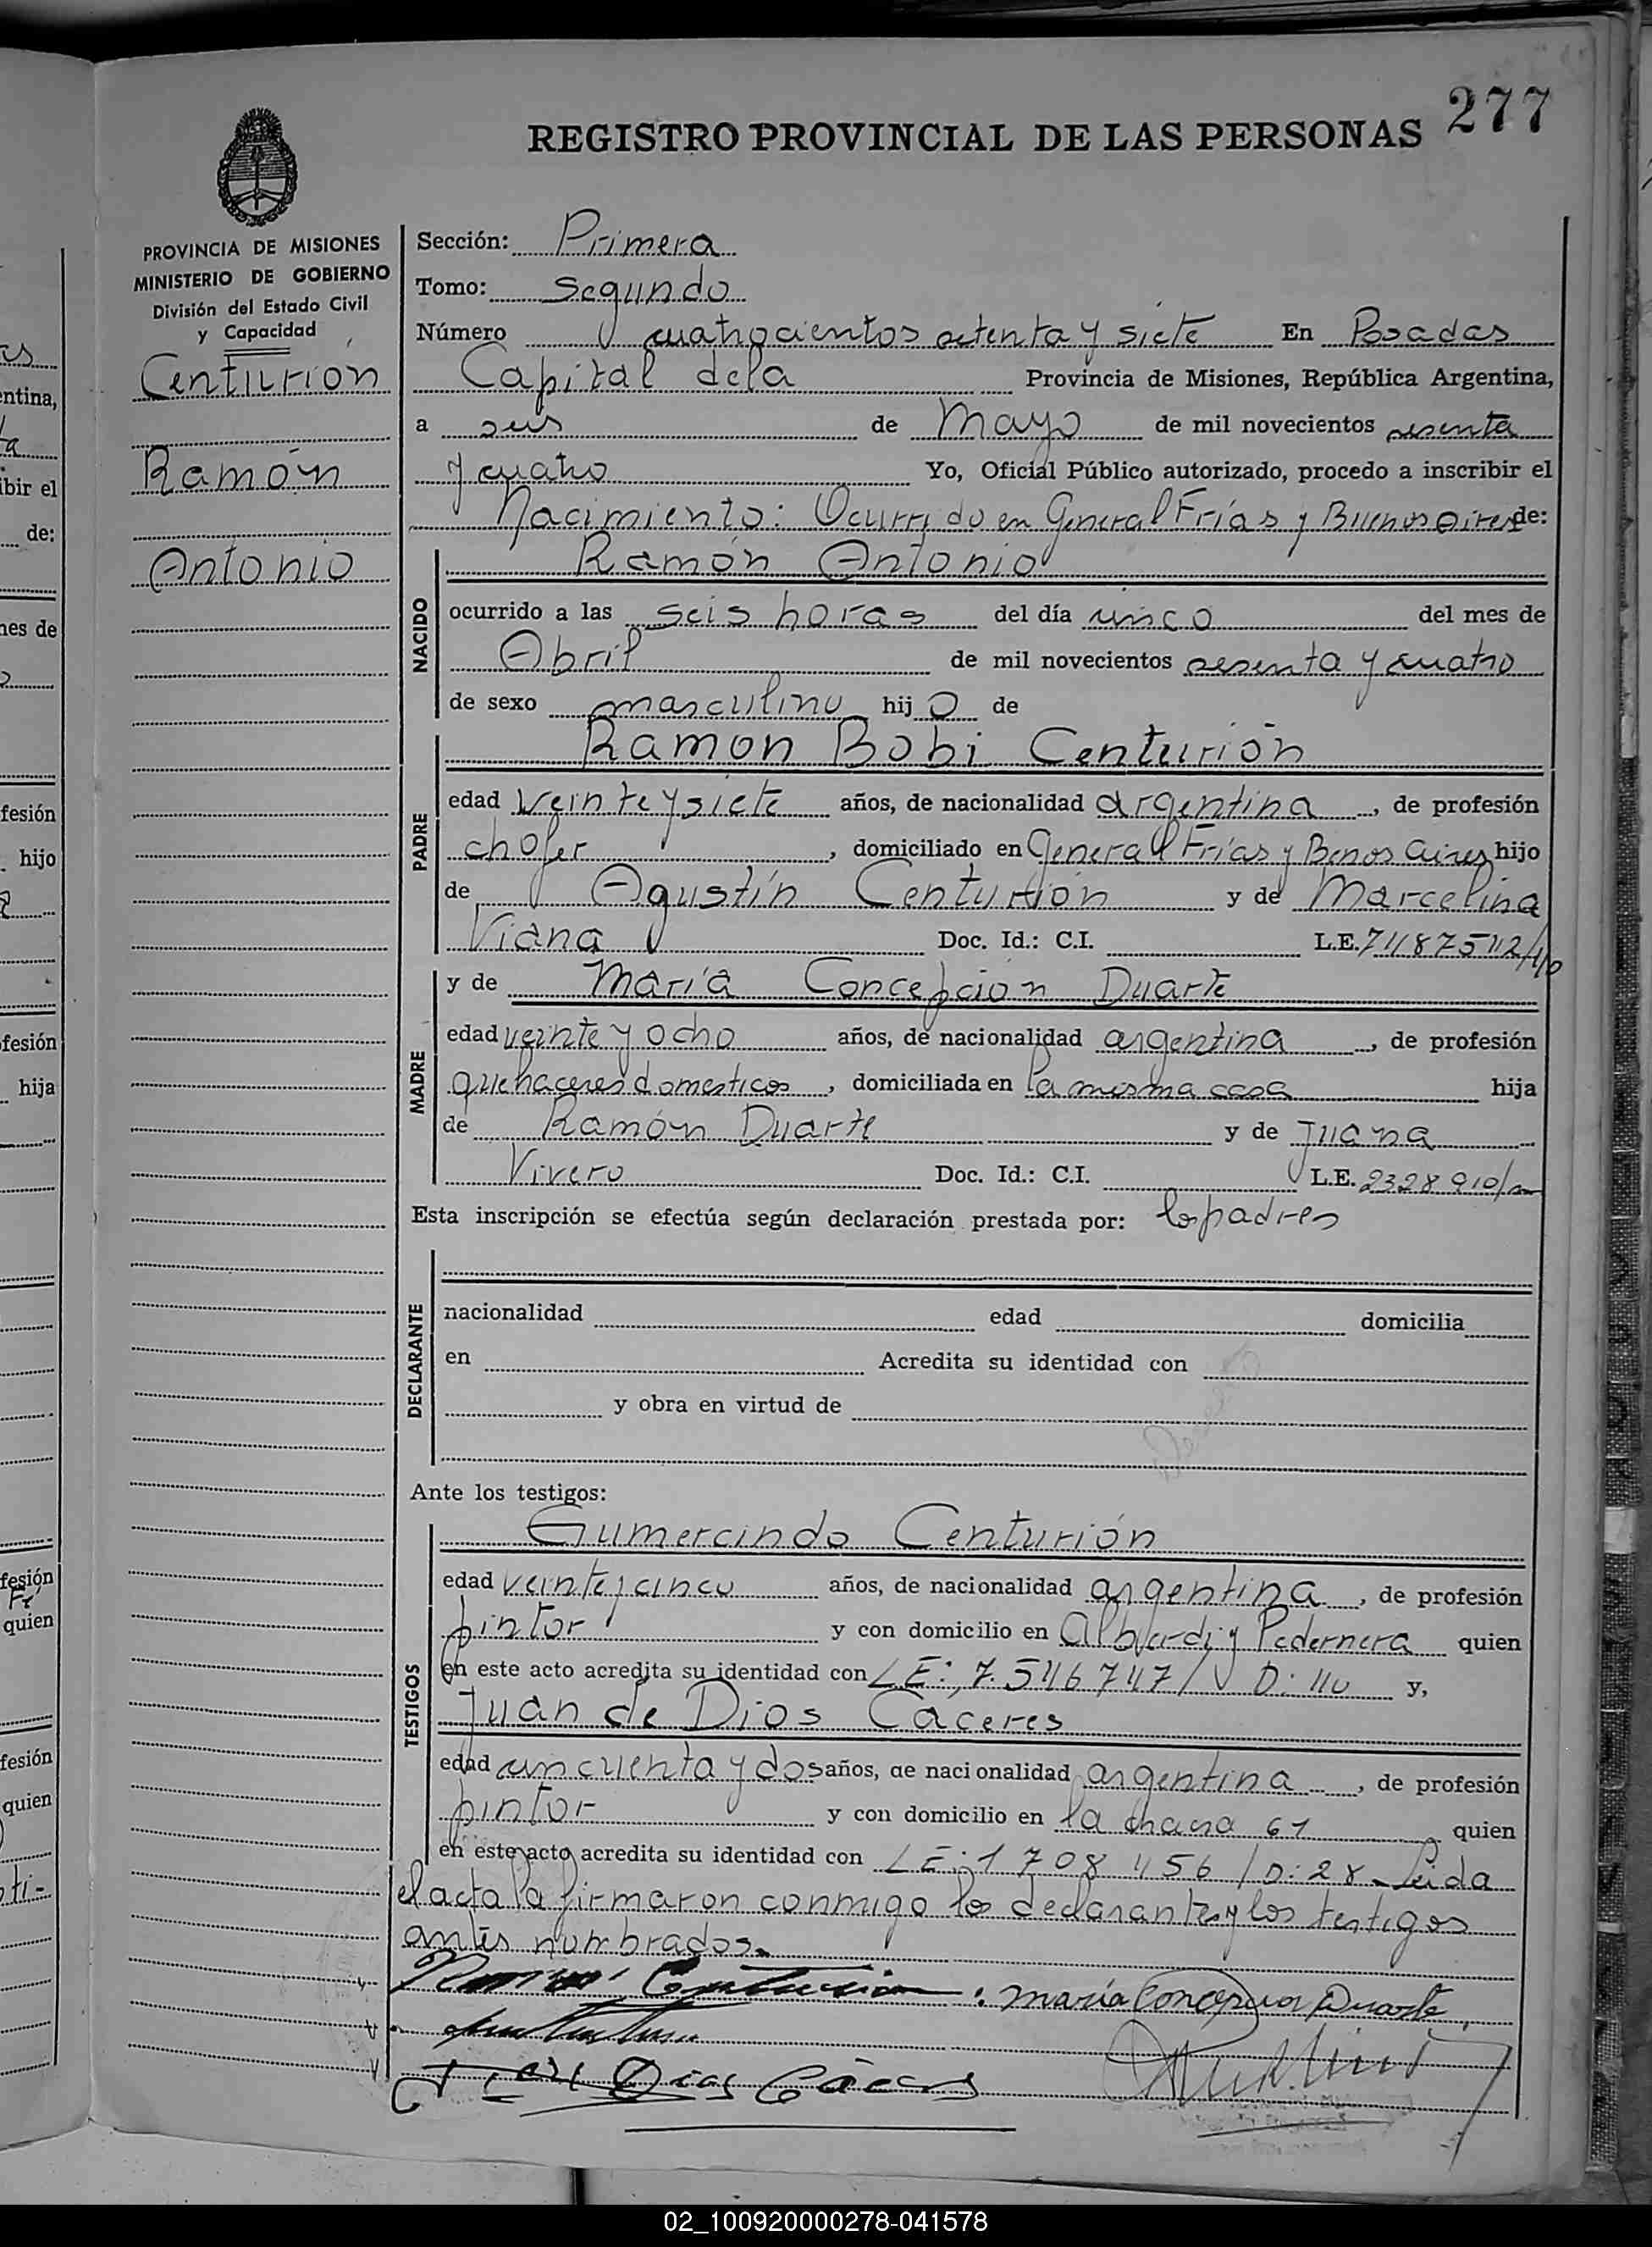 277
REGISTRO PROVINCIAL DE LAS PERSONAS
PROVINCIA DE MISIONES
MINISTERIO DE GOBIERNO
División del Estado Civil
y Capacidad
Centurión
Ramón
Antonio
Sección: Primera
Tomo: Segundo
Número cuatrocientos setenta y siete En Posadas
Capital dela Provincia de Misiones, República Argentina,
a seis de Mayo de mil novecientos sesenta
y cuatro Yo, Oficial Público autorizado, procedo a inscribir el
Nacimiento: Ocurrido en General Frías y Buenos Aires de:
NACIDO
Ramón Antonio
ocurrido a las seis horas del día cinco del mes de
Abril de mil novecientos sesenta y cuatro
de sexo masculino hij o de
PADRE
Ramon Bobi Centurión
edad veinte y siete años, de nacionalidad argentina, de profesión
chofer, domiciliado en General Frías y Benos Aires hijo
de Agustín Centurión y de Marcelina
Viana Doc. Id.: C.I. L.E.
MADRE
y de María Concepción Duarte
edad veinte y ocho años, de nacionalidad argentina, de profesión
quehaceres domesticos, domiciliada en la misma casa hija
de Ramón Duarte y de Juana
Vivero Doc. Id.: C.I. L.E. 2328910/
Esta inscripción se efectúa según declaración prestada por: los padres
DECLARANTE
nacionalidad edad domicilia
en Acredita su identidad con
y obra en virtud de
Ante los testigos:
TESTIGOS
Gumercindo Centurión
edad veinte y cinco años, de nacionalidad argentina, de profesión
pintor y con domicilio en Alberdi y Pedernera quien
en este acto acredita su identidad con L E: 7.546747/ D: 40 y,
Juan de Dios Caceres
edad cincuenta y dos años, de nacionalidad argentina, de profesión
pintor y con domicilio en la chacra 61 quien
en este acto acredita su identidad con L E: 1708456/D: 28 - Leida
el acta la firmaron conmigo los declarantes y los testigos
antes nombrados.
Ramon Centurion. María Concepcion Duarte
Dios Cáceres
02_100920000278-041578